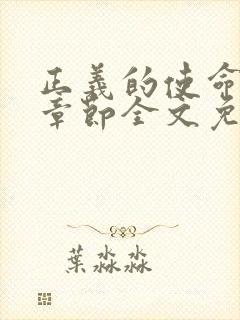 正義的使命
章節全文免
葉淼淼